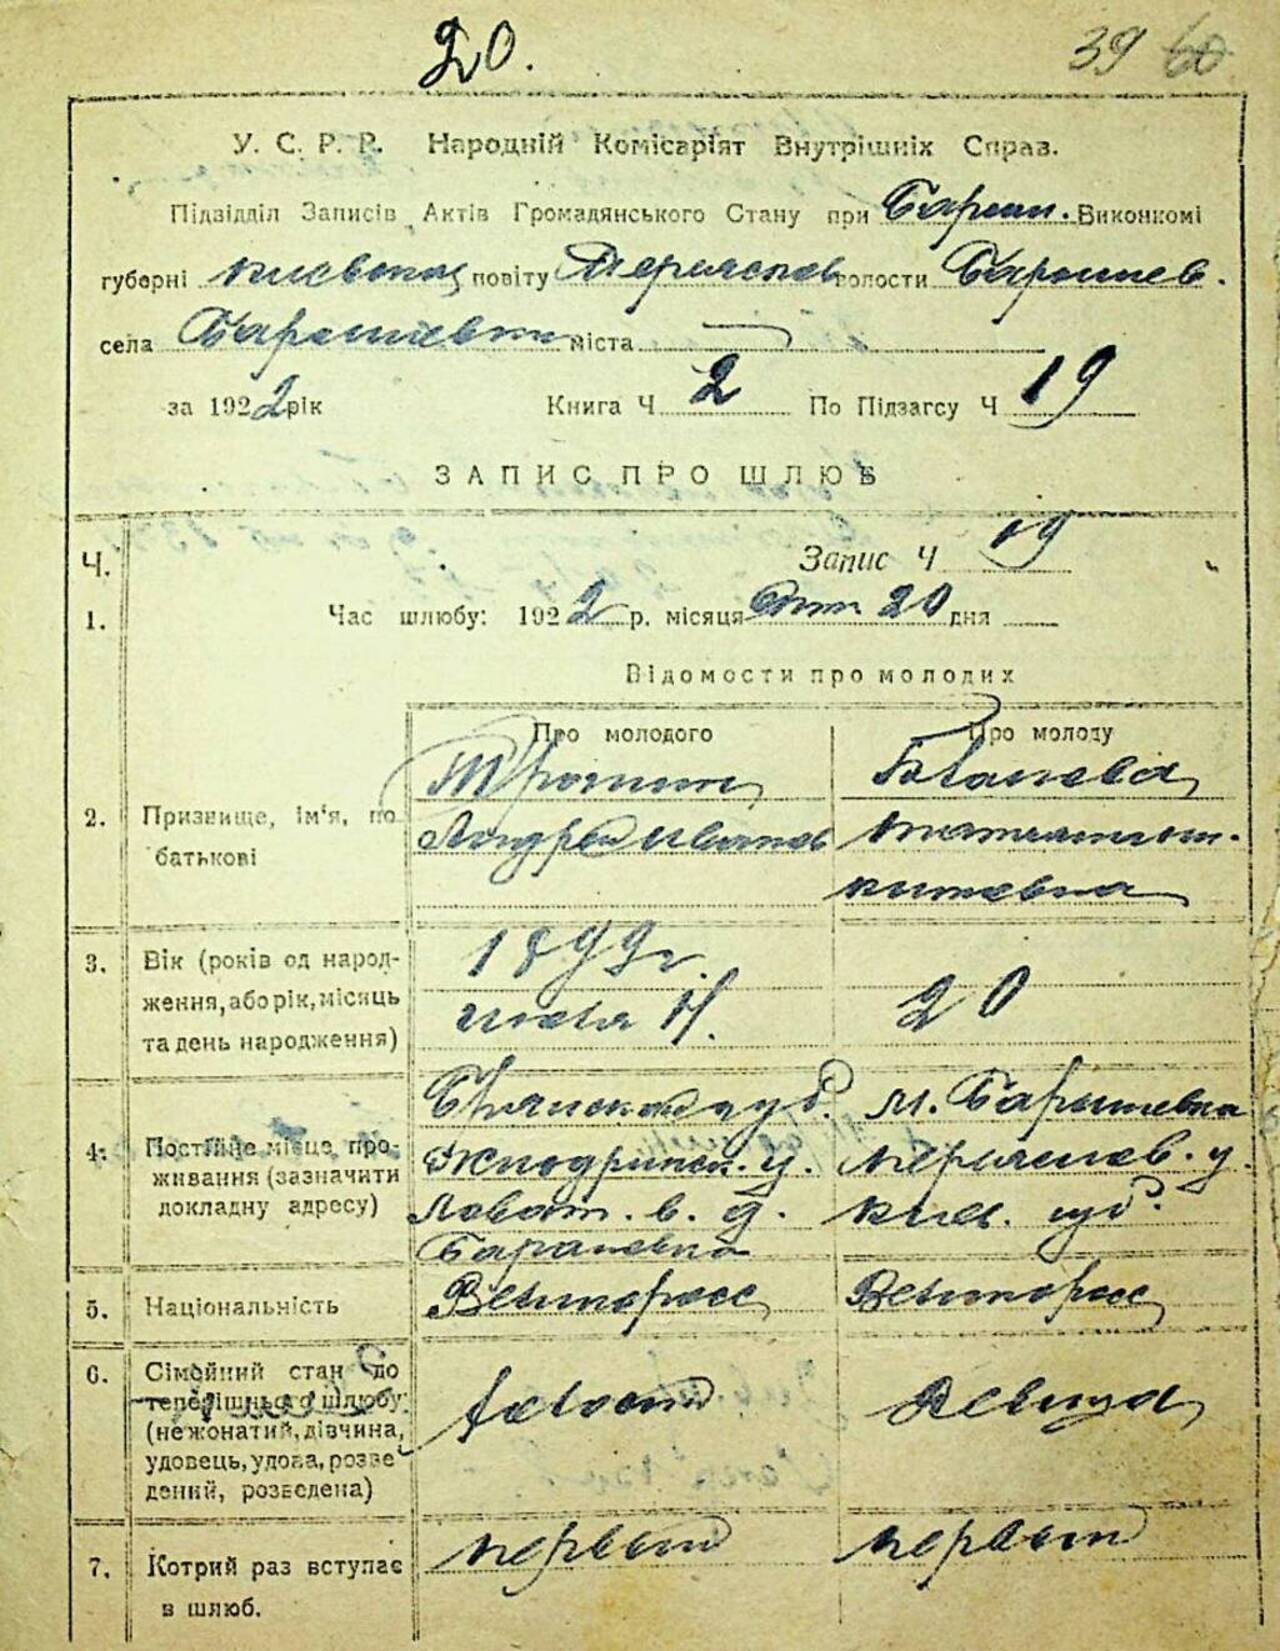 20.
39 60
У. С. Р. Р. Народній Комісаріят Внутрішніх Справ.
Підвідділ Записів Актів Громадянського Стану при Бариш. Виконкомі
губерні Киевской повіту Переяслав волости Барышев.
села Барышевки міста
за 1922 рік Книга Ч 2 По Підзагсу Ч 19
ЗАПИС ПРО ШЛЮБ
Ч. Запис Ч 19
1. Час шлюбу: 1922 р. місяця 20 дня
Відомости про молодих
Про молодого Про молоду
2. Призвище, ім'я, по
батькові
Андрей Иванов
китевна
3. Вік (років од народ-
ження, або рік, місяць
та день народження)
1899 г.
20
4. Постійне місце про-
живання (зазначити
докладну адресу)
Брянской губ. м. Барышевка
у. Переяслав. у.
в. д. Киев. губ.
5. Національність Великоросс Великоросс
6. Сімейний стан до
теперішнього шлюбу
(нежонатий, дівчина,
удовець, удова, розве
дений, розведена)
холостой девица
7. Котрий раз вступає
в шлюб.
первый первый